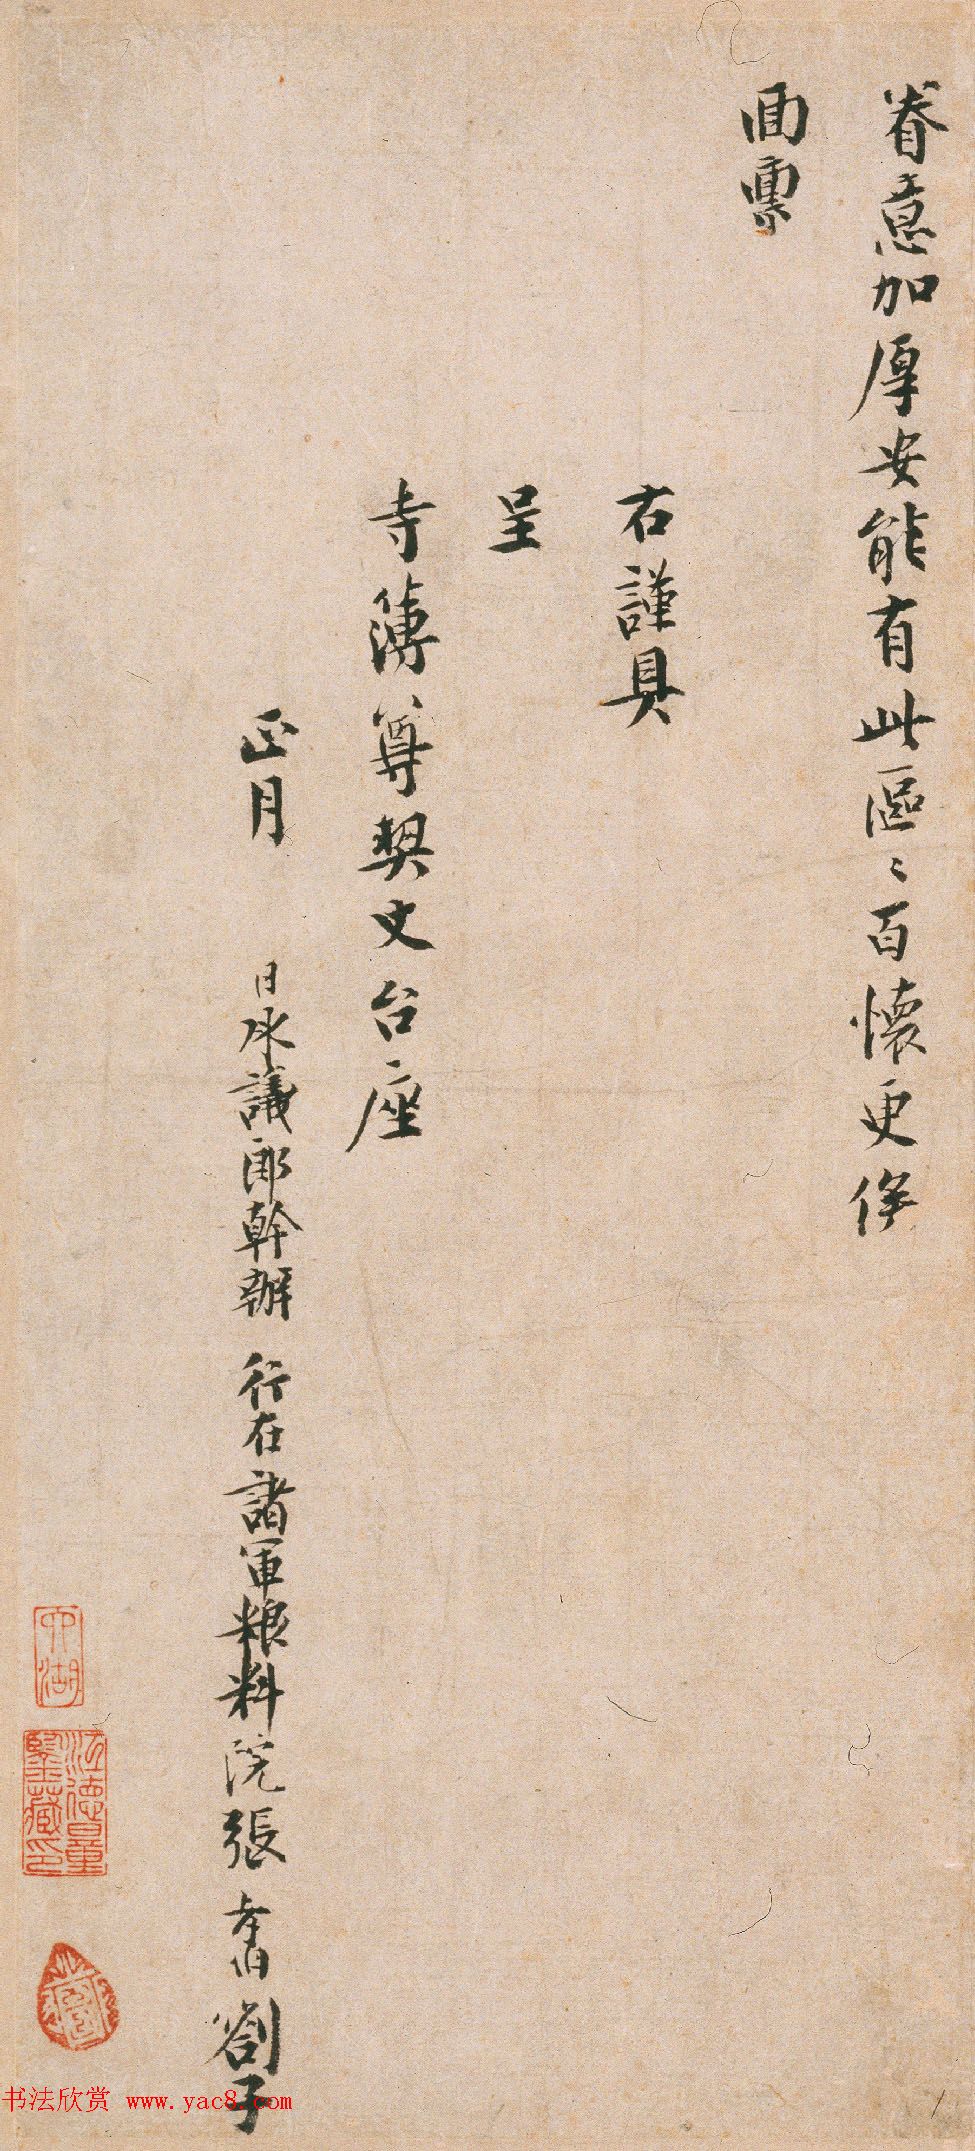 眷意加厚安能有此區〻百懷更俟
面稟
右謹具
呈
寺簿尊契丈台座
正月 日承議郎幹辦 行在諸軍糧料院張孝伯劄子
書法欣赏 www.yac8.com